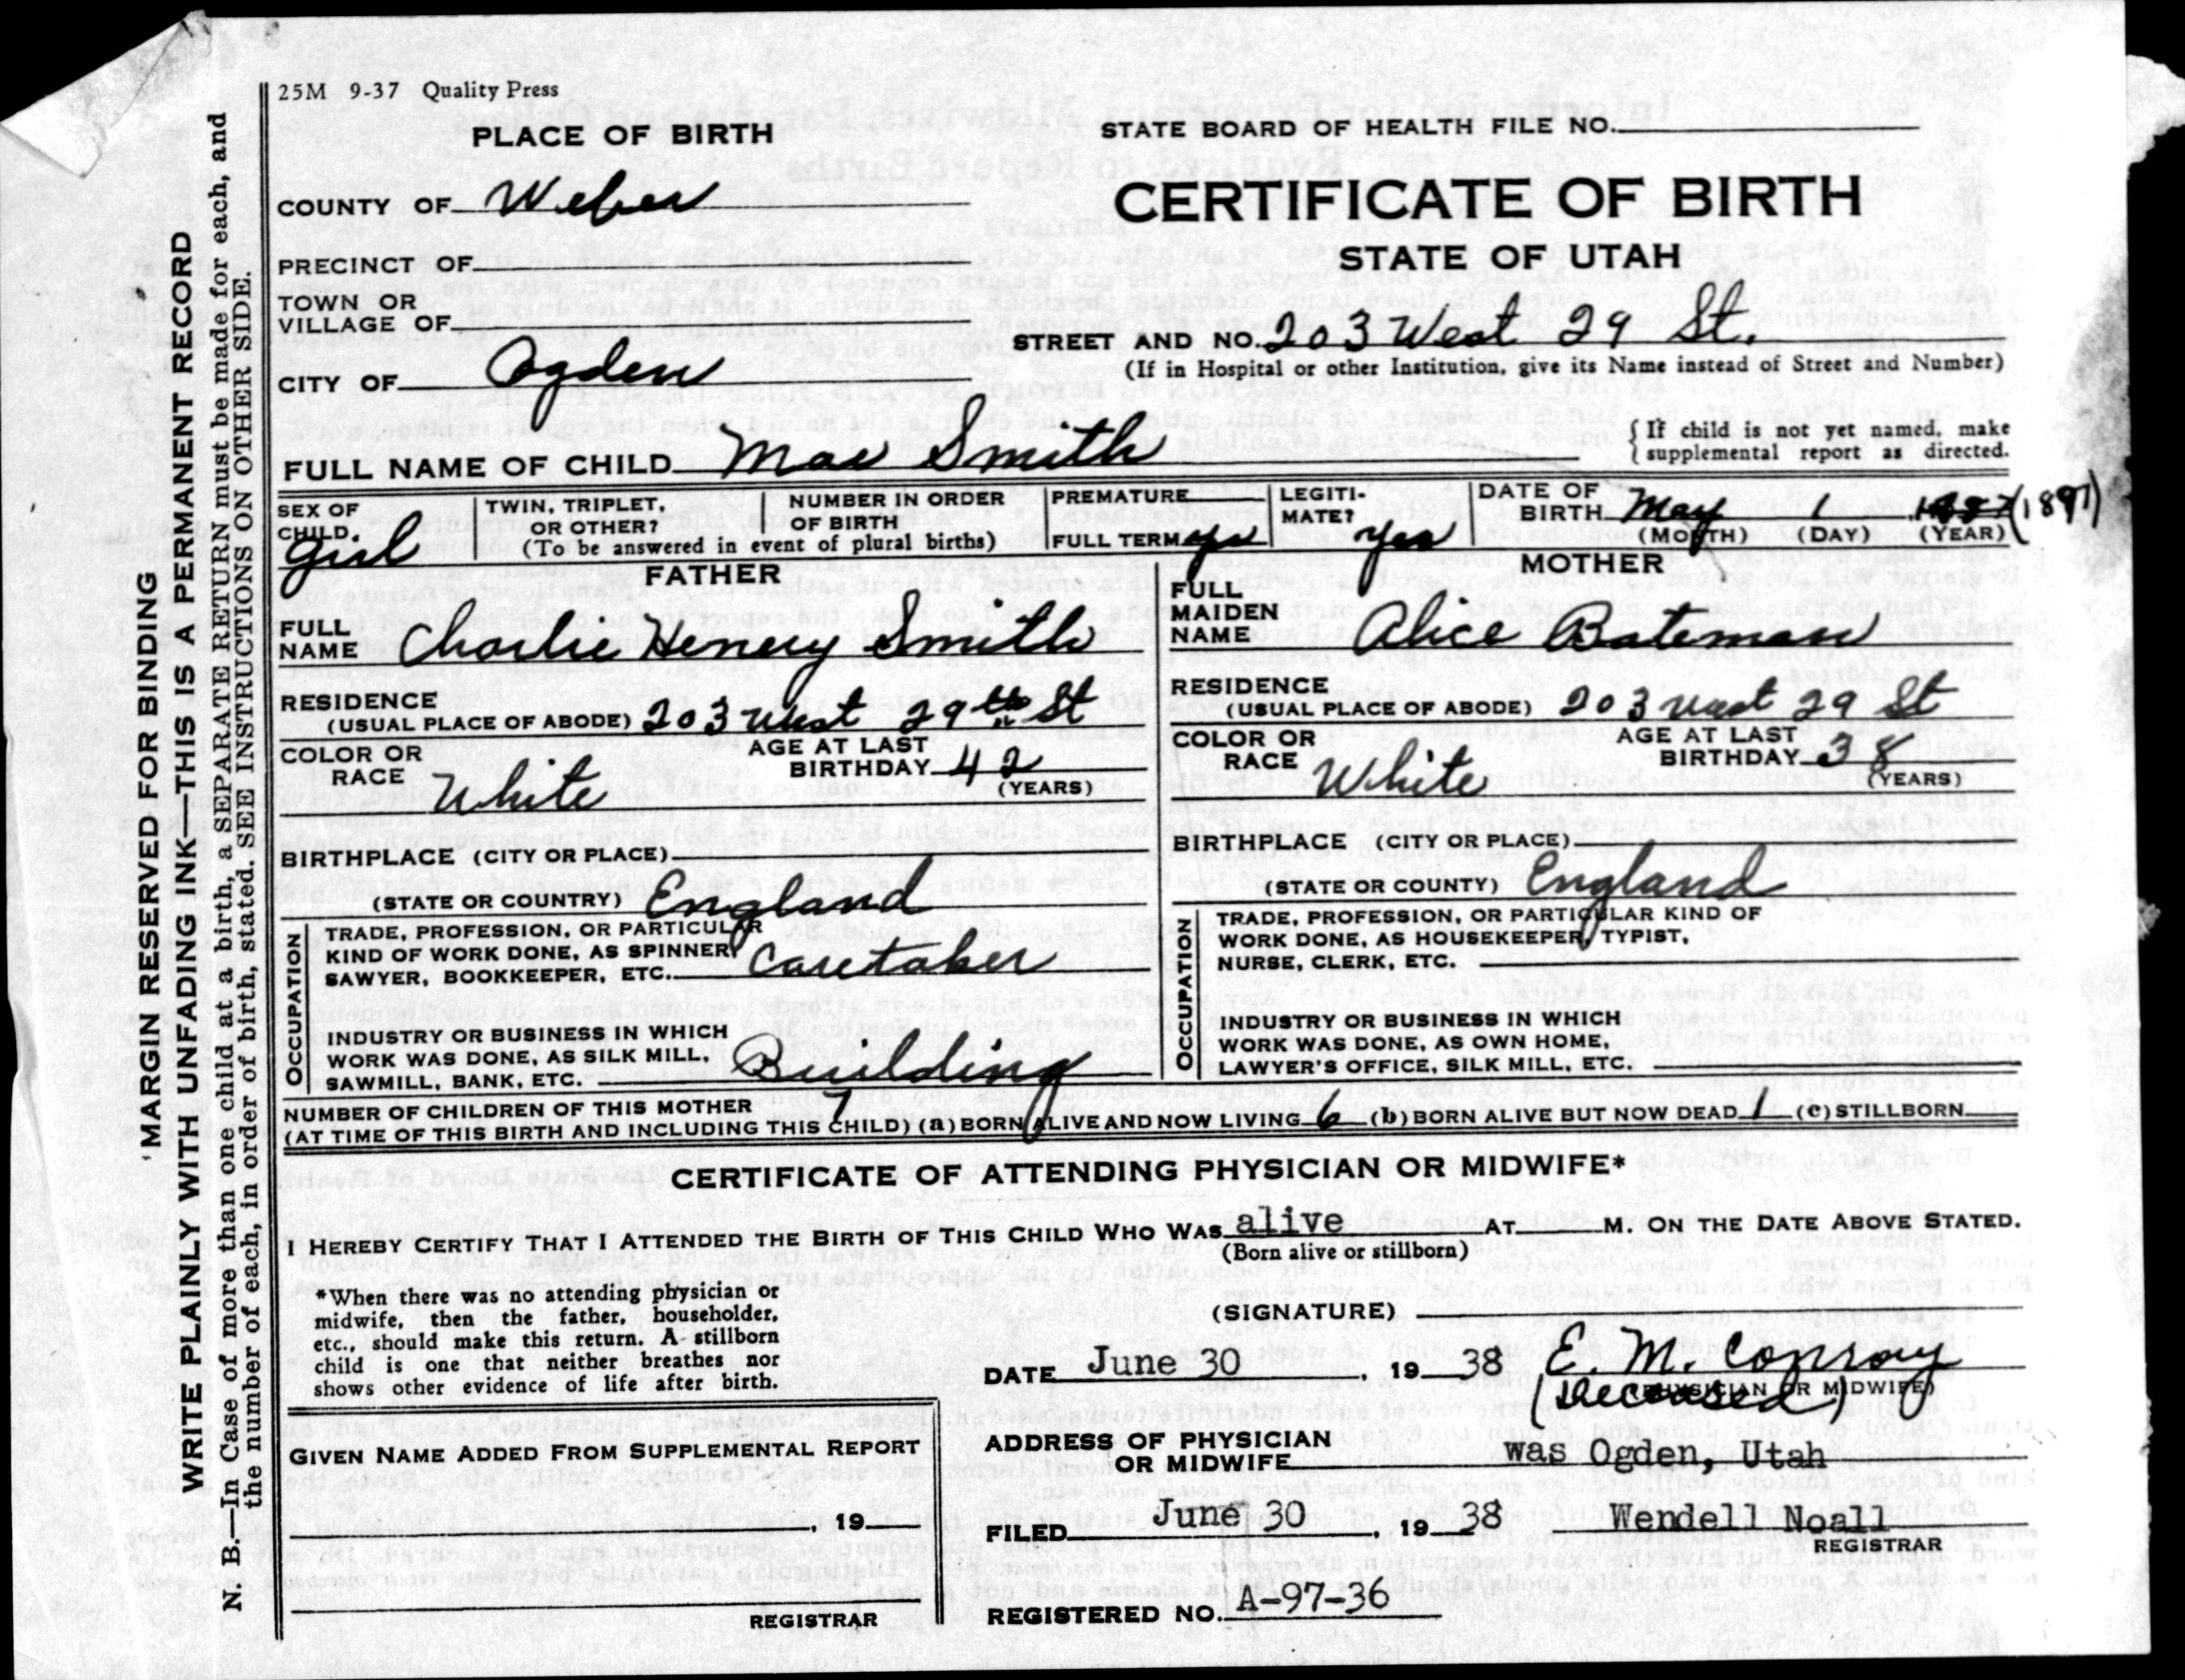 25M 9-37 Quality Press
PLACE OF BIRTH
STATE BOARD OF HEALTH FILE NO.
COUNTY OF Weber
CERTIFICATE OF BIRTH
STATE OF UTAH
PRECINCT OF
TOWN OR
VILLAGE OF
STREET AND NO. 203 West 29 St.
(If in Hospital or other Institution, give its Name instead of Street and Number)
CITY OF Ogden
FULL NAME OF CHILD Mae Smith
{ If child is not yet named, make
{ supplemental report as directed.
SEX OF
CHILD girl
TWIN, TRIPLET,
OR OTHER?
NUMBER IN ORDER
OF BIRTH
(To be answered in event of plural births)
PREMATURE
FULL TERM yes
LEGITI-
MATE? yes
DATE OF
BIRTH May 1 (1897)
(MONTH) (DAY) (YEAR)
FATHER
FULL
NAME Charlie Henery Smith
RESIDENCE
(USUAL PLACE OF ABODE) 203 West 29th St
COLOR OR
RACE White
AGE AT LAST
BIRTHDAY 42
(YEARS)
BIRTHPLACE (CITY OR PLACE)
(STATE OR COUNTRY) England
OCCUPATION
TRADE, PROFESSION, OR PARTICULAR
KIND OF WORK DONE, AS SPINNER
SAWYER, BOOKKEEPER, ETC. Caretaker
INDUSTRY OR BUSINESS IN WHICH
WORK WAS DONE, AS SILK MILL,
SAWMILL, BANK, ETC. Building
MOTHER
FULL
MAIDEN
NAME Alice Bateman
RESIDENCE
(USUAL PLACE OF ABODE) 203 West 29 St
COLOR OR
RACE White
AGE AT LAST
BIRTHDAY 38
(YEARS)
BIRTHPLACE (CITY OR PLACE)
(STATE OR COUNTY) England
OCCUPATION
TRADE, PROFESSION, OR PARTICULAR KIND OF
WORK DONE, AS HOUSEKEEPER, TYPIST,
NURSE, CLERK, ETC.
INDUSTRY OR BUSINESS IN WHICH
WORK WAS DONE, AS OWN HOME,
LAWYER'S OFFICE, SILK MILL, ETC.
NUMBER OF CHILDREN OF THIS MOTHER 7
(AT TIME OF THIS BIRTH AND INCLUDING THIS CHILD) (a) BORN ALIVE AND NOW LIVING 6 (b) BORN ALIVE BUT NOW DEAD 1 (c) STILLBORN
CERTIFICATE OF ATTENDING PHYSICIAN OR MIDWIFE*
I HEREBY CERTIFY THAT I ATTENDED THE BIRTH OF THIS CHILD WHO WAS alive AT M. ON THE DATE ABOVE STATED.
(Born alive or stillborn)
*When there was no attending physician or
midwife, then the father, householder,
etc., should make this return. A stillborn
child is one that neither breathes nor
shows other evidence of life after birth.
(SIGNATURE)
DATE June 30, 19 38 E. M. Conroy
(Deceased) (PHYSICIAN OR MIDWIFE)
ADDRESS OF PHYSICIAN
OR MIDWIFE was Ogden, Utah
FILED June 30, 19 38 Wendell Noall
REGISTRAR
REGISTERED NO. A-97-36
GIVEN NAME ADDED FROM SUPPLEMENTAL REPORT
, 19
REGISTRAR
MARGIN RESERVED FOR BINDING
WRITE PLAINLY WITH UNFADING INK—THIS IS A PERMANENT RECORD
N. B.—In Case of more than one child at a birth, a SEPARATE RETURN must be made for each, and
the number of each, in order of birth, stated. SEE INSTRUCTIONS ON OTHER SIDE.